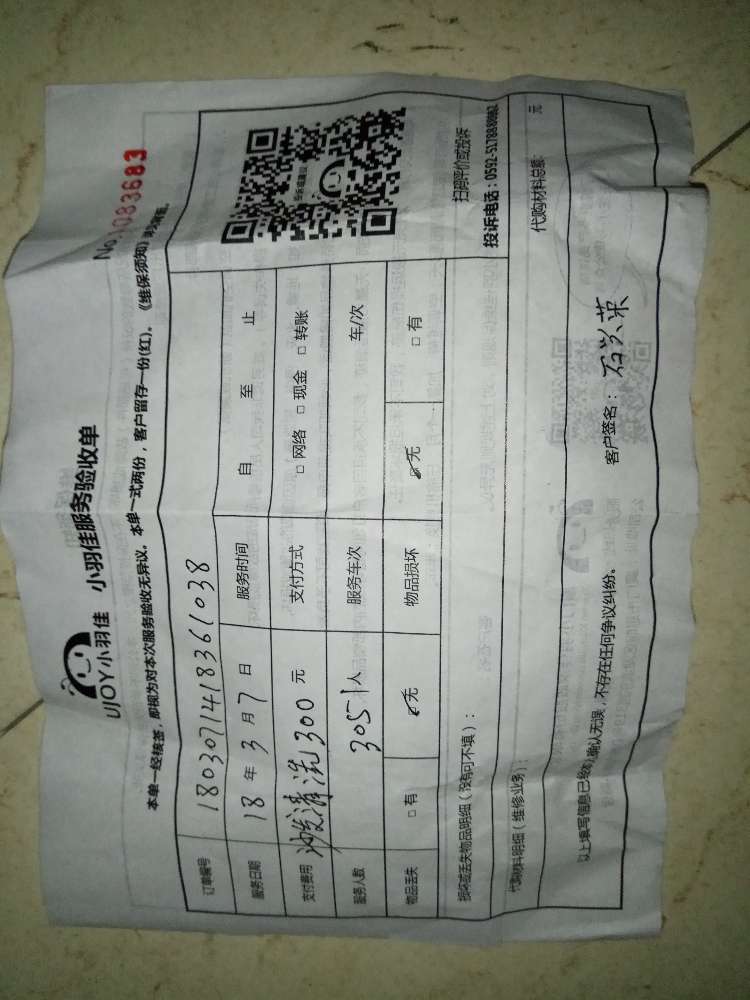 UJOY小羽佳 小羽佳服务验收单
No. 1083683
本单一经核签，即视为对本次服务验收无异议。本单一式两份，客户留存一份(红)。《维保须知》
订单编号 1803071418361038
服务日期 18 年 3 月 7 日 服务时间 自 至 止
支付费用 沙发清洗300 元 支付方式 □ 网络 □ 现金 □ 转账
服务人数 3051 人 服务车次 车/次
物品丢失 □ 有 ☑无 物品损坏 ☑无 □ 有
扫码评价或投诉
损坏或丢失物品明细（没有可不填）：
代购材料明细（维修业务）： 代购材料总额： 元
以上填写信息已经确认无误，不存在任何争议纠纷。 客户签名：石兴荣